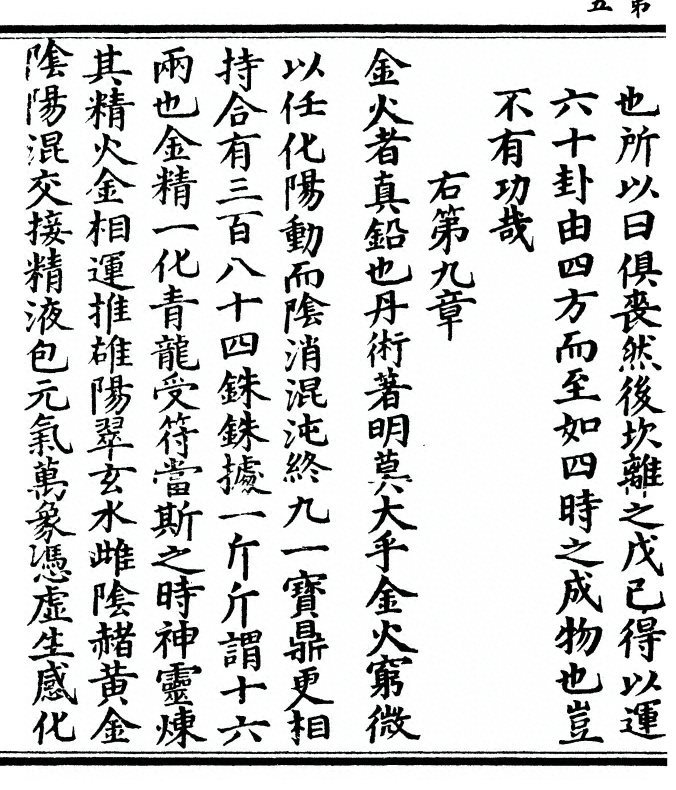 第五
也所以曰俱喪然後坎離之戊己得以運
六十卦由四方而至如四時之成物也豈
不有功哉
右第九章
金火者真鉛也丹術著明莫大乎金火窮微
以任化陽動而陰消混沌終九一寶鼎更相
持合有三百八十四銖銖據一斤斤謂十六
兩也金精一化青龍受符當斯之時神靈煉
其精火金相運推雄陽翠玄水雌陰赭黃金
陰陽混交接精液包元氣萬象憑虛生感化